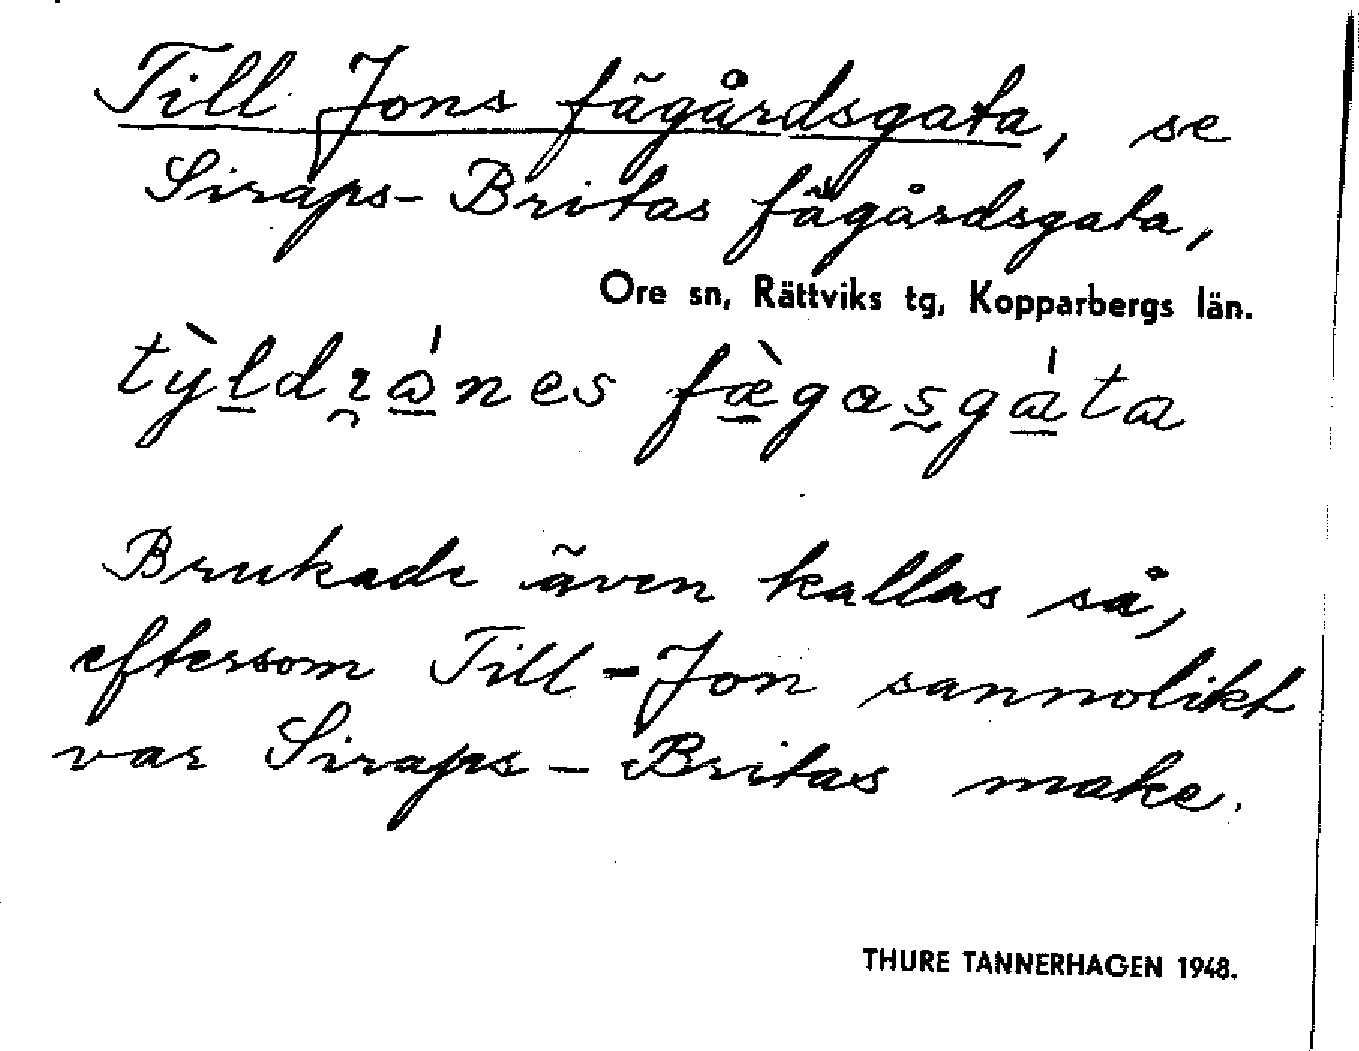 Till Jons fägårdsgata, se
Siraps-Britas fägårdsgata,
Ore sn, Rättviks tg, Kopparbergs län.
Brukade även kallas så,
eftersom Till-Jon sannolikt
var Siraps-Britas make.
THURE TANNERHAGEN 1948.